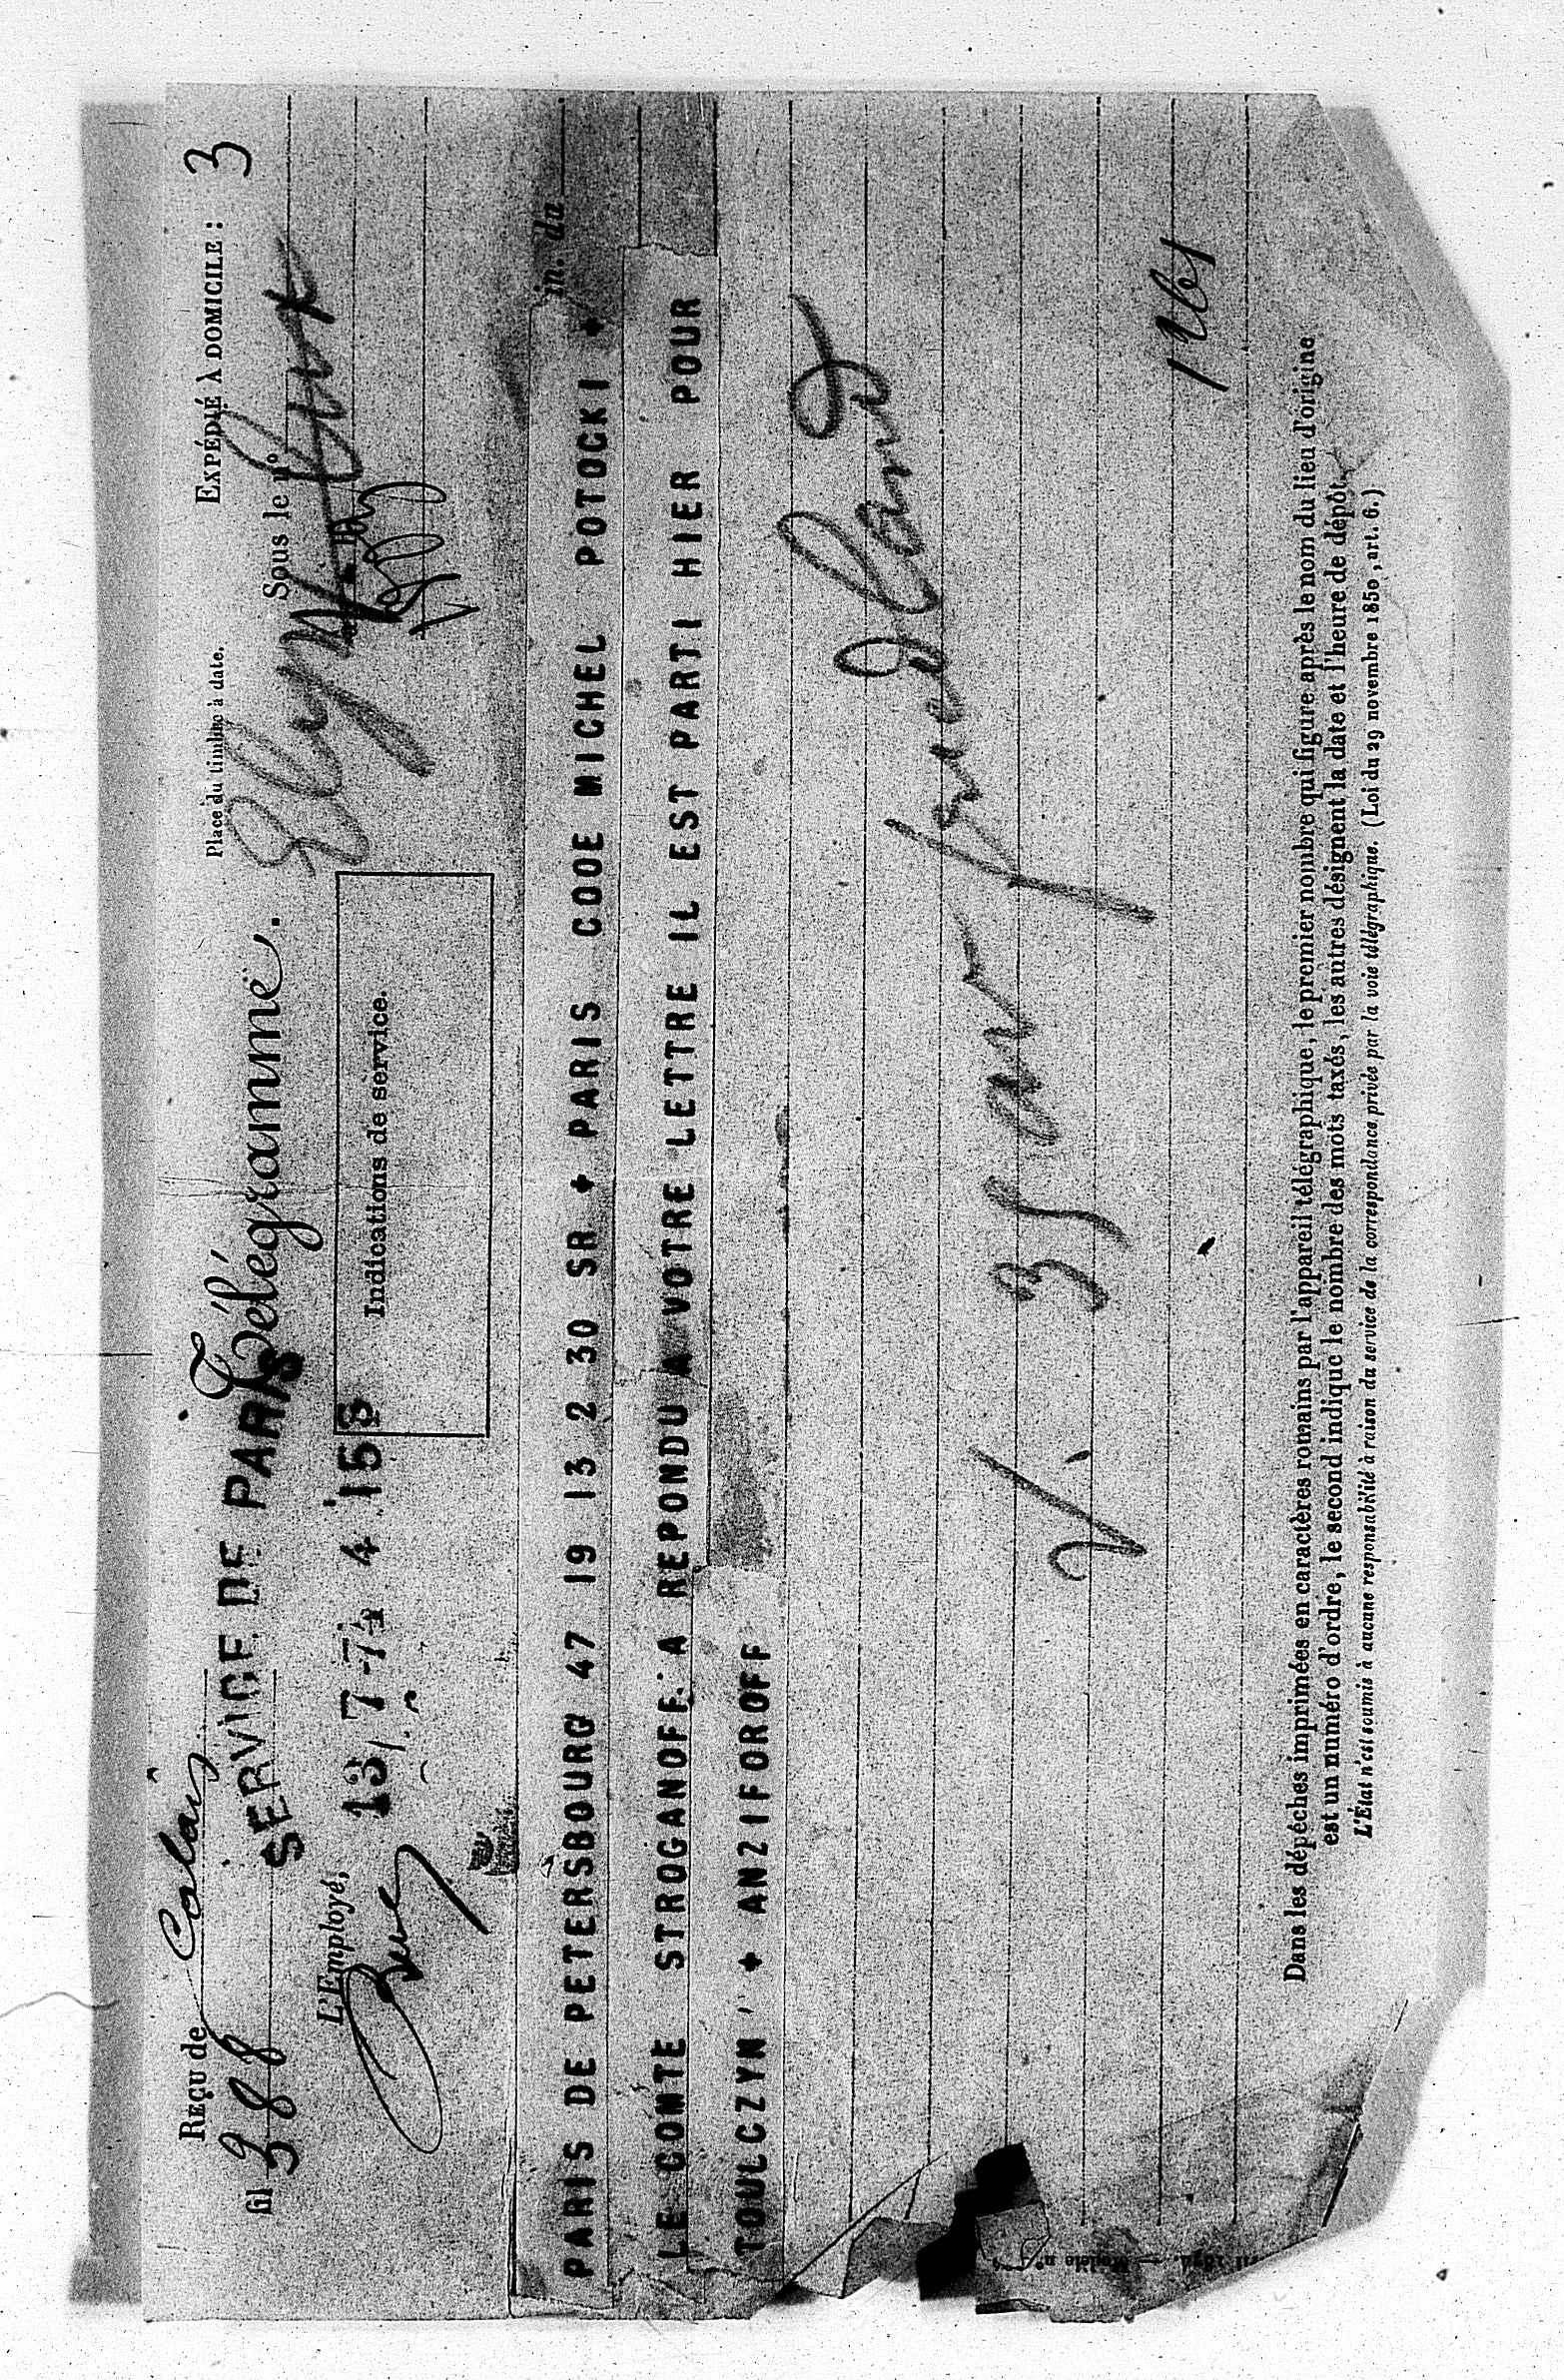 Reçu de Calais
fil 388
SERVICE DE PARIS
Télégramme.
Place du timbre à date.
EXPÉDIÉ À DOMICILE : 3
Sous le n°
L'Employé,
13 7 74 4 15S
Indications de service.
in. da
PARIS DE PETERSBOURG 47 19 13 2 30 SR + PARIS COOE MICHEL POTOCKI +
LE COMTE STROGANOFF A REPONDU A VOTRE LETTRE IL EST PARTI HIER POUR
TOULCZYN + ANZIFOROFF
V. 35
Dans les dépêches imprimées en caractères romains par l'appareil télégraphique, le premier nombre qui figure après le nom du lieu d'origine
est un numéro d'ordre, le second indique le nombre des mots taxés, les autres désignent la date et l'heure de dépôt.
L'État n'est soumis à aucune responsabilité à raison du service de la correspondance privée par la voie télégraphique. (Loi du 29 novembre 1850, art. 6.)